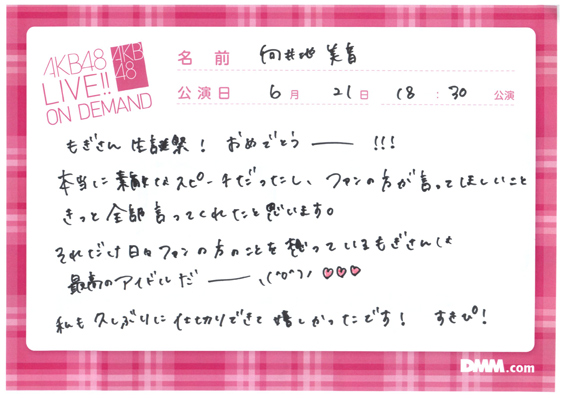 AKB48
LIVE!!
ON DEMAND
AKB
48
名前 向井地 美音
公演日 6月 21日 18:30 公演
もぎさん 生誕祭! おめでとうーー !!!
本当に素敵なスピーチだったし、ファンの方が言ってほしいこと
きっと全部言ってくれたと思います。
それだけ日々ファンの方のことを想っているもぎさんは
最高のアイドルだーー ヽ(^o^)ノ ♡♡♡
私も久しぶりに仕切りできて嬉しかったです! すきぴ!
DMM.com